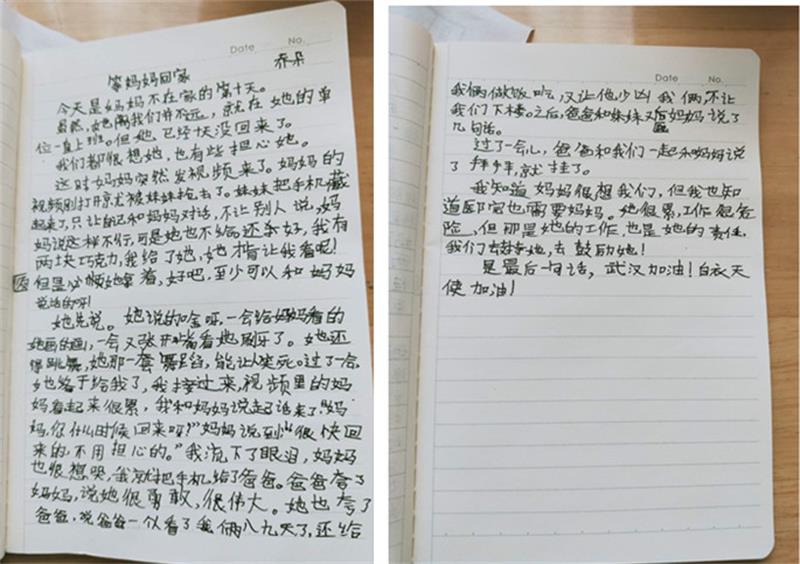 Date No.
等妈妈回家
乔朵
今天是妈妈不在家的第十天。
虽然,她离我们并不远,就在她的单
位一直上班。但她已经十天没回来了。
我们都很想她,也有些担心她。
这时妈妈突然发视频来了。妈妈的
视频刚打开京尤被妹妹抢去了。妹妹把手机藏
起来了,只让自己和妈妈对话,不让别人说,妈
妈说这样不行,可是她也不给,还好,我有
两块巧克力,我给了她,她才肯让我看呢!
但是必须她拿着,好吧,至少可以和妈妈
说话的呀!
她先说。她说的啥呀,一会给妈妈看的
她画的画,一会又张开嘴看她刷牙了。她还
得跳舞,她那一套舞蹈,能让人笑死。过了一会,
她终于给我了,我接过来,视频里的妈
妈看起来很累,我和妈妈说起了话来了"妈
妈,你什么时候回来呀?"妈妈说到"很快回
来的,不用担心的。"我流下了眼泪,妈妈
也很想哭,我就把手机给了爸爸。爸爸夸了
妈妈,说她很勇敢,很伟大。她也夸了
爸爸,说爸爸一个人看了我俩八九天了,还给
Date No.
我俩做饭吃,又让他少凶我俩,不让
我们下楼。之后,爸爸和妹妹又后妈妈说了
几句话。
过了一会儿,爸爸和我们一起和妈妈说
了拜拜,就挂了。
我知道妈妈很想我们,但我也知
道医院也需要妈妈。她很累,工作很危
险,但那是她的工作,也是她的责任,
我们去支持她,去鼓励她!
是最后一句话,武汉加油!白衣天
使加油!